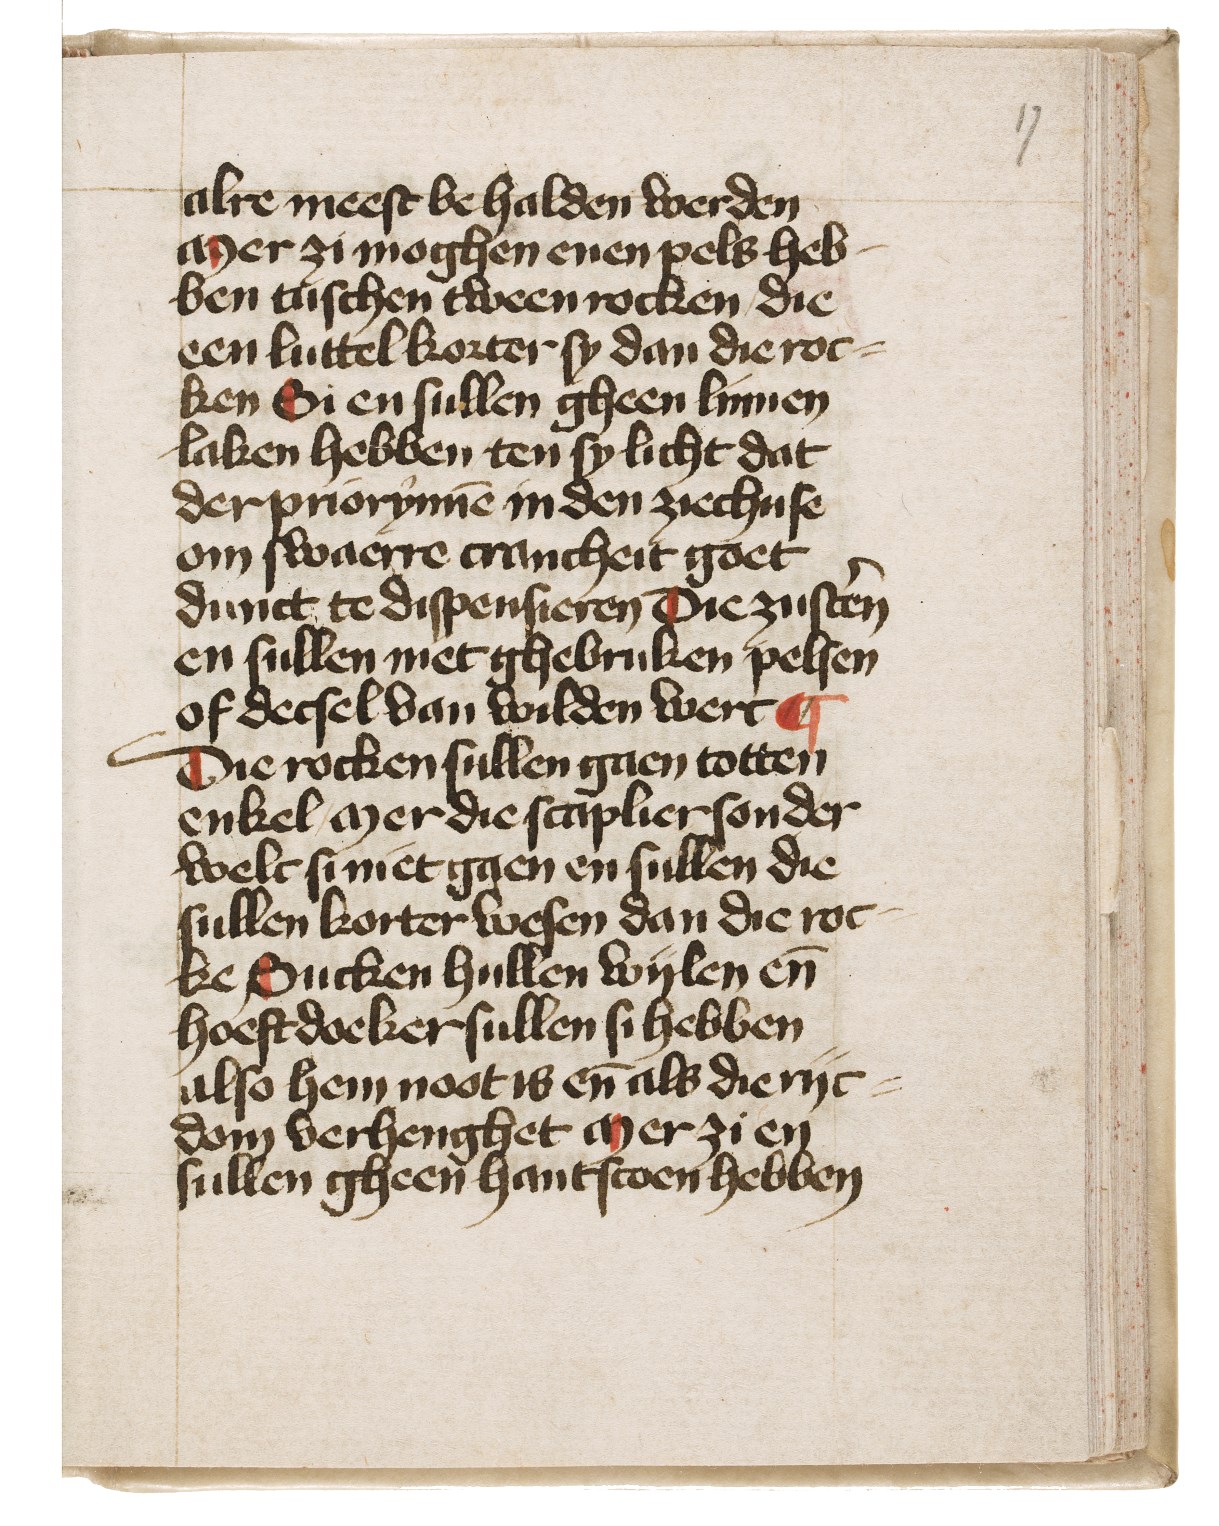 17
alre meest be halden werden
Mer zi moghen enen pels heb-
ben tuschen tween rocken / die
een luttel korter sy dan die roc=
ken Si en sullen gheen linnen
laken hebben ten sy licht dat
der priorÿnnē in den ziechuse
om swaerre crancheit goet
dunct te dispensieren Die zustern̄
en sullen niet ghebruken pelsen
of decsel van wilden werc ¶
Die rocken sullen gaen totten
enkel / Mer die scaplier sonder
welc si niet gaen en sullen die
sullen korter wesen dan die roc-
ke Sucken hullen wijlen en̄
hoeftdoeker sullen si hebben
also hem noot is en̄ als die rijc=
dom verhenghet Mer zi en
sullen gheen hantscoen hebben